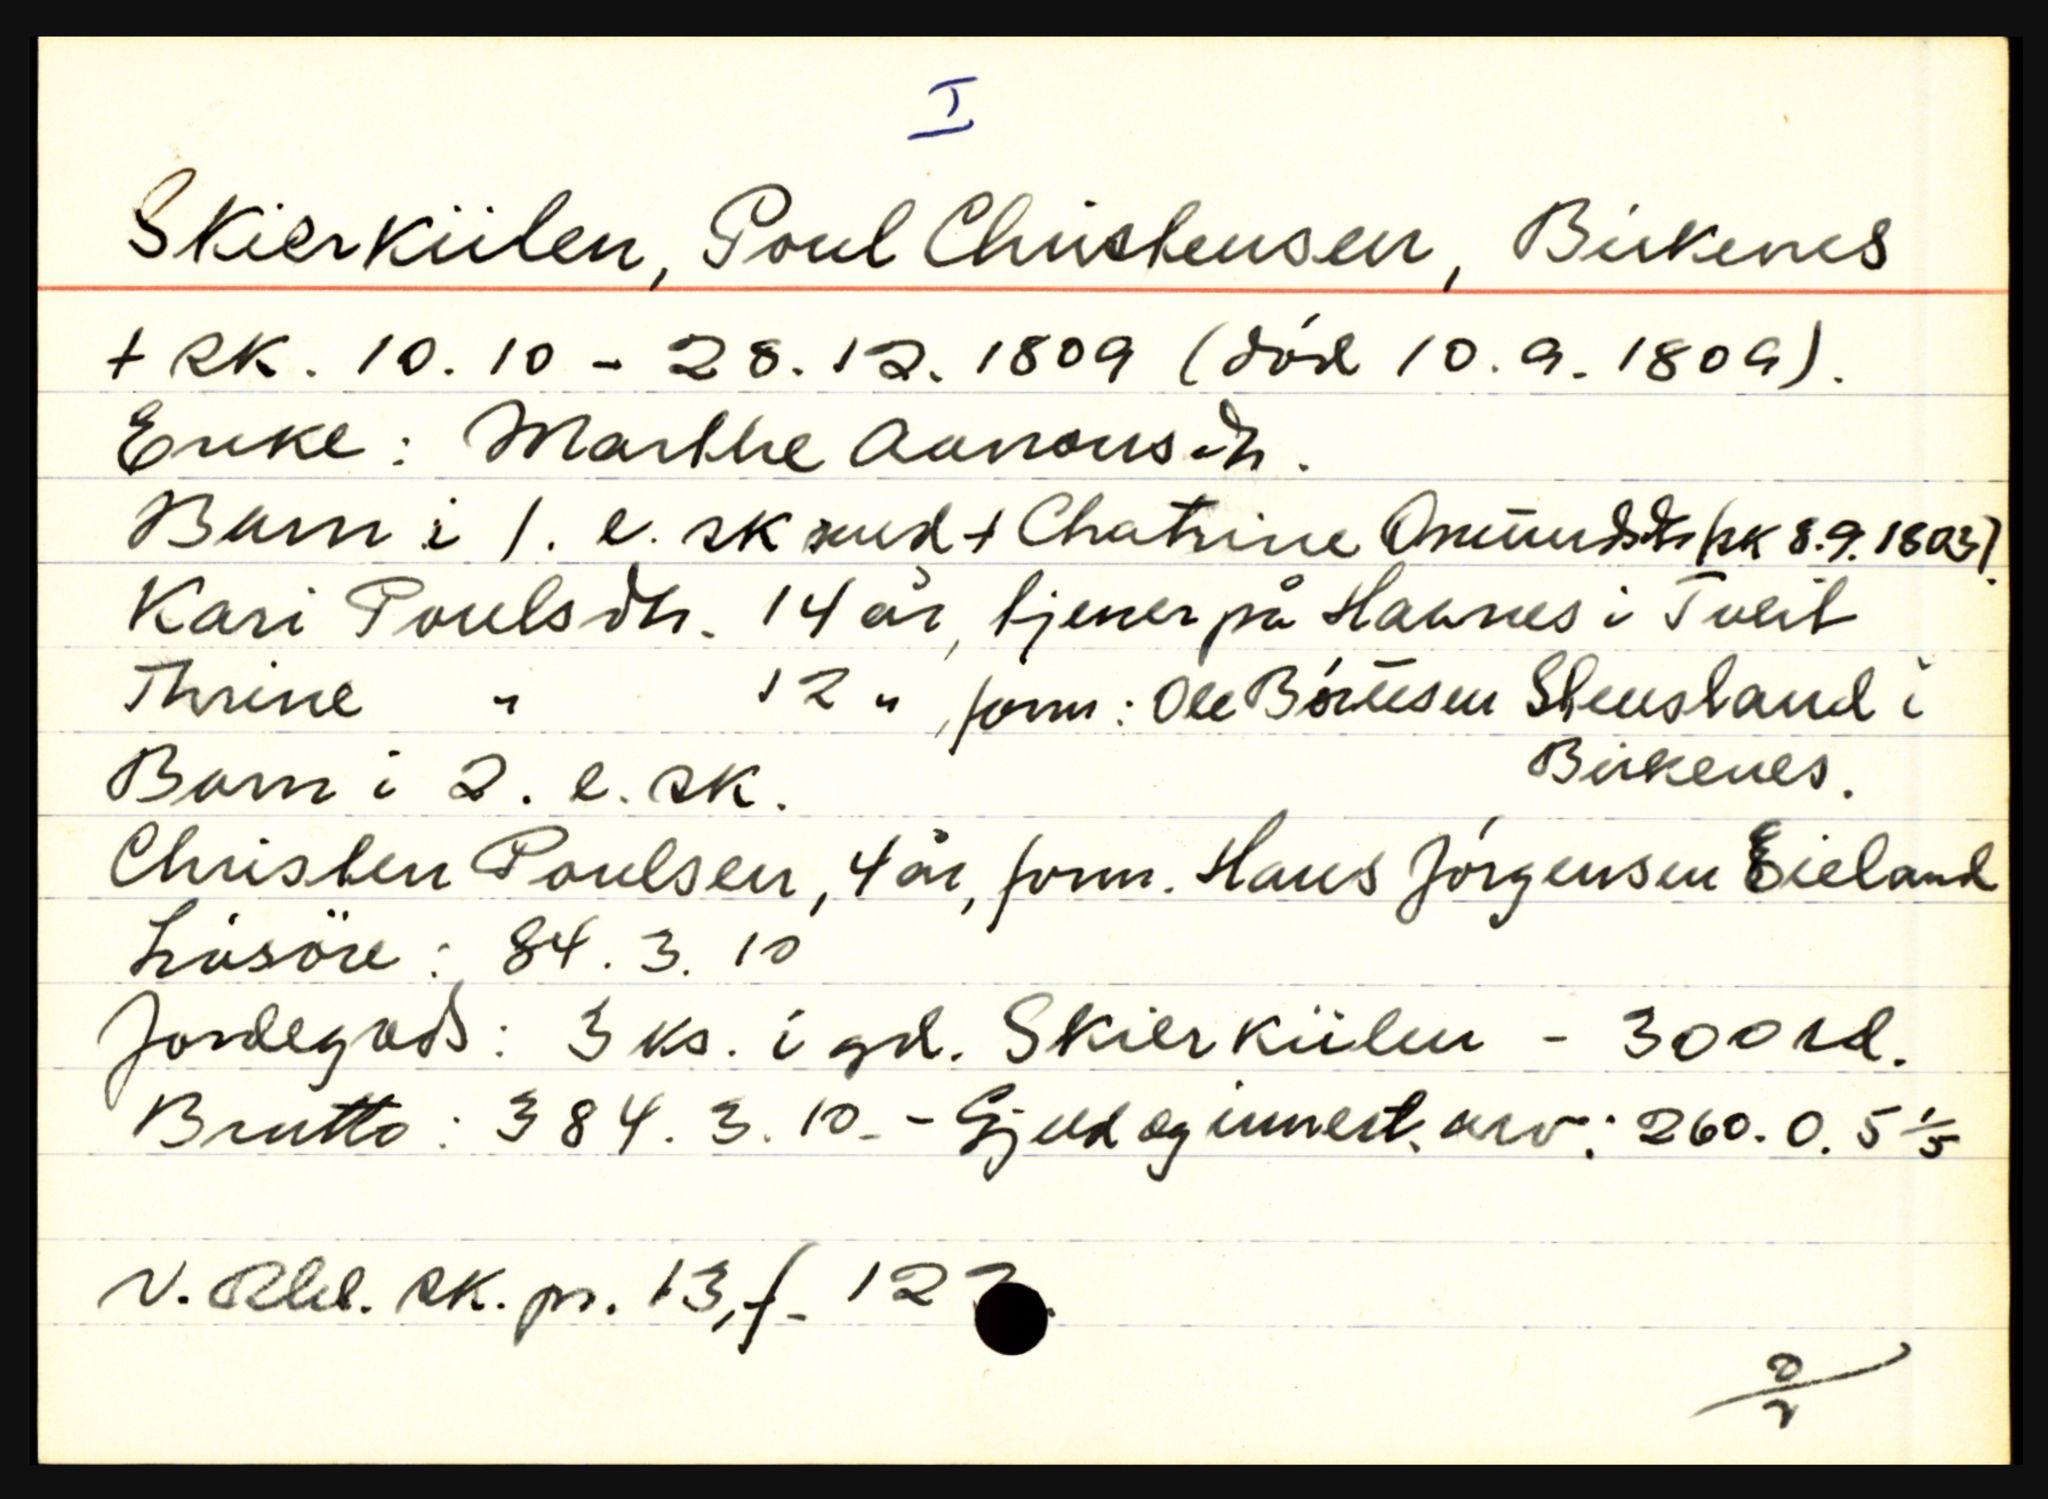 I
Skierkülen, Poul Christensen, Birkenes
+ sk. 10.10 - 28.12. 1809 (död 10.9.1809).
Enke: Marthe Aanonsdtr.
Barn i 1. e. sk med + Chatrine Omundsdtr (sk 8.9.1803).
Kari Poulsdtr. 14 år, tjener på Hannes i Tveit
Thrine " 12 ", form: Ole Börüesen Stensland i
Birkenes.
Barn i 2. e. sk.
Christen Poulsen, 4 år, form. Hans Jörgensen Eieland
Lösöre: 84. 3. 10
Jordegods: 3 ks. i gd. Skierkülen - 300 rd.
Brutto: 384. 3. 10. - Gjeld og innest. arv: 260. 0. 5 1/5
N. Rbl. sk. pr. 13, f. 12